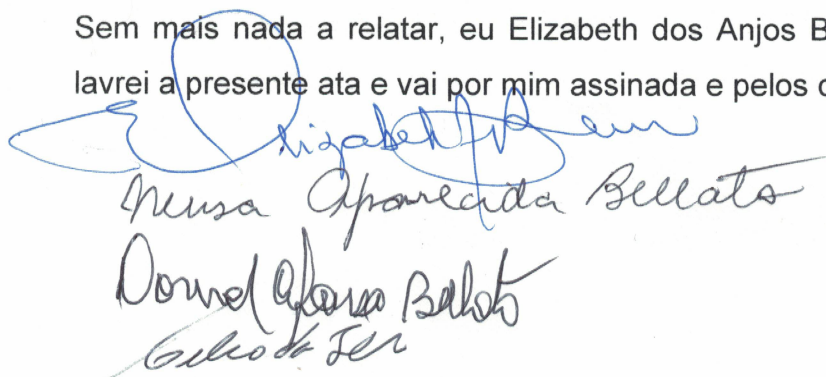 Sem mais nada a relatar, eu Elizabeth dos Anjos B
lavrei a presente ata e vai por mim assinada e pelos
Elizabeth
Neusa Aparecida Bellato
Afonso Bellato